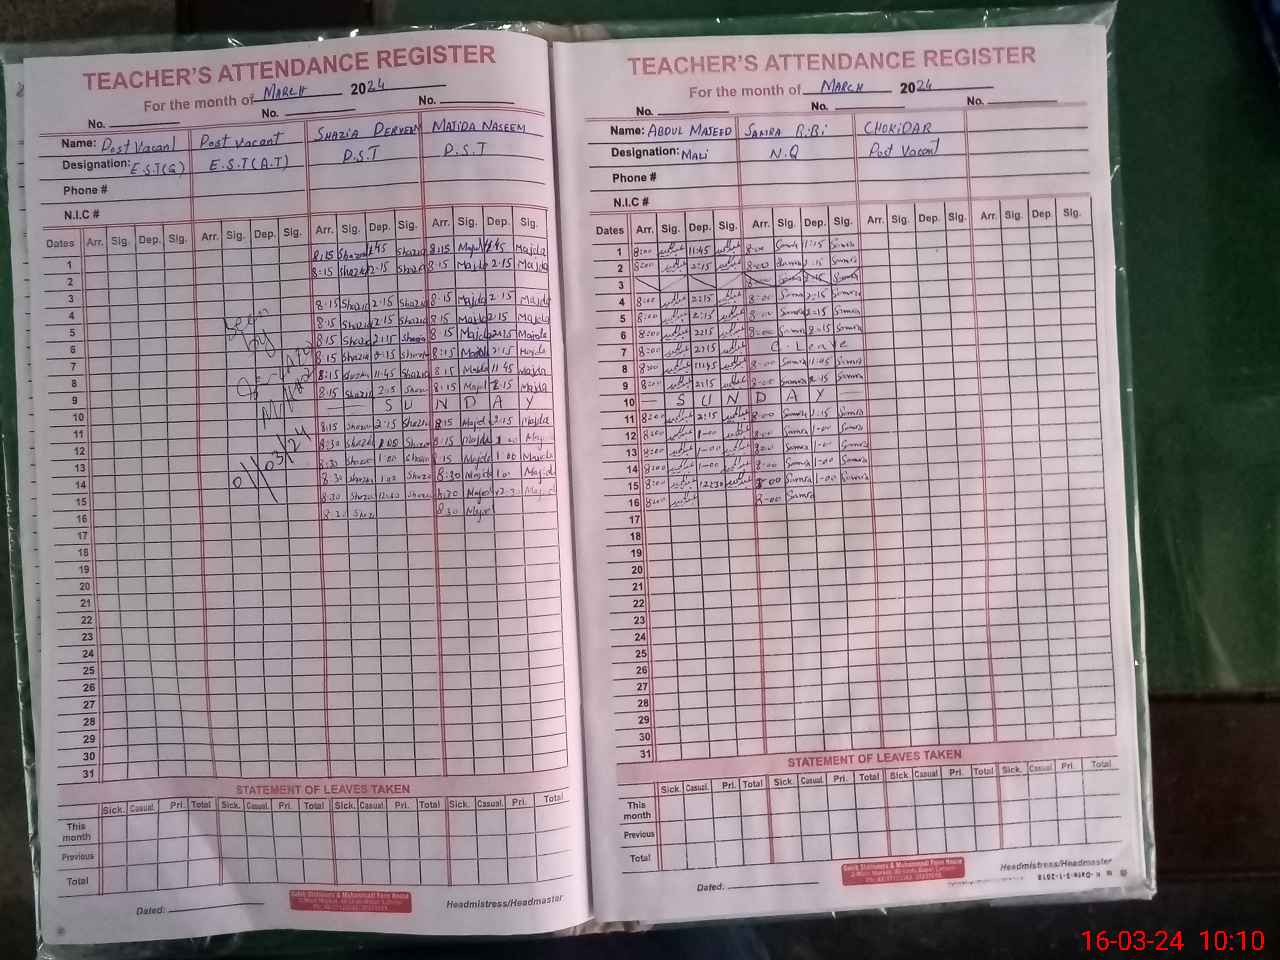 TEACHER'S ATTENDANCE REGISTER
For the month of MARCH 2024
No. No. No.
Name: Post Vacant Post Vacant SHAZIA PERVEEN MAJIDA NASEEM
Designation: E.S.T(G) E.S.T(A.T) P.S.T P.S.T
Phone #
N.I.C #
Dates Arr. Sig. Dep. Sig. Arr. Sig. Dep. Sig. Arr. Sig. Dep. Sig. Arr. Sig. Dep. Sig.
1 8:15 Shazia 11:45 Shazia 8:15 Majida 11:45 Majida
2 8:15 Shazia 2:15 Shazia 8:15 Majida 2:15 Majida
3
4 8:15 Shazia 2:15 Shazia 8:15 Majida 2:15 Majida
5 8:15 Shazia 2:15 Shazia 8:15 Majida 2:15 Majida
6 8:15 Shazia 2:15 Shazia 8:15 Majida 2:15 Majida
7 8:15 Shazia 2:15 Shazia 8:15 Majida 2:15 Majida
8 8:15 Shazia 11:45 Shazia 8:15 Majida 11:45 Majida
9 8:15 Shazia 2:15 Shazia 8:15 Majida 2:15 Majida
10 S U N D A Y
11 8:15 Shazia 2:15 Shazia 8:15 Majida 2:15 Majida
12 8:30 Shazia 1:00 Shazia 8:15 Majida 1:00 Majida
13 8:30 Shazia 1:00 Shazia 8:15 Majida 1:00 Majida
14 8:30 Shazia 1:00 Shazia 8:30 Majida 1:00 Majida
15 8:30 Shazia 12:30 Shazia 8:30 Majida 12:30 Majida
16 8:30 Shazia 8:30 Majida
17
18
19
20
21
22
23
24
25
26
27
28
29
30
31
Seen
by
01/03/24
STATEMENT OF LEAVES TAKEN
Sick. Casual. Pri. Total Sick. Casual. Pri. Total Sick. Casual. Pri. Total Sick. Casual. Pri. Total
This month
Previous
Total
Dated: Headmistress/Headmaster
TEACHER'S ATTENDANCE REGISTER
For the month of MARCH 2024
No. No. No.
Name: ABDUL MAJEED SAMRA BiBi CHOKIDAR
Designation: MALI N.Q Post Vacant
Phone #
N.I.C #
Dates Arr. Sig. Dep. Sig. Arr. Sig. Dep. Sig. Arr. Sig. Dep. Sig. Arr. Sig. Dep. Sig.
1 8:00 11:45 8:00 Samra 11:15 Samra
2 8:00 2:15 8:00 Samra 2:15 Samra
3
4 8:00 2:15 8:00 Samra 2:15 Samra
5 8:00 2:15 8:00 Samra 2:15 Samra
6 8:00 2:15 8:00 Samra 2:15 Samra
7 8:00 2:15 C. Leave
8 8:00 11:45 8:00 Samra 11:45 Samra
9 8:00 2:15 8:00 Samra 2:15 Samra
10 S U N D A Y
11 8:00 2:15 8:00 Samra 2:15 Samra
12 8:00 1-00 8:00 Samra 1-00 Samra
13 8:00 1-00 8:00 Samra 1-00 Samra
14 8:00 1-00 8:00 Samra 1-00 Samra
15 8:00 12:30 8-00 Samra 1-00 Samra
16 8:00 8-00 Samra
17
18
19
20
21
22
23
24
25
26
27
28
29
30
31
STATEMENT OF LEAVES TAKEN
Sick. Casual. Pri. Total Sick. Casual. Pri. Total Sick. Casual. Pri. Total Sick. Casual. Pri. Total
This month
Previous
Total
Dated: Headmistress/Headmaster
16-03-24 10:10